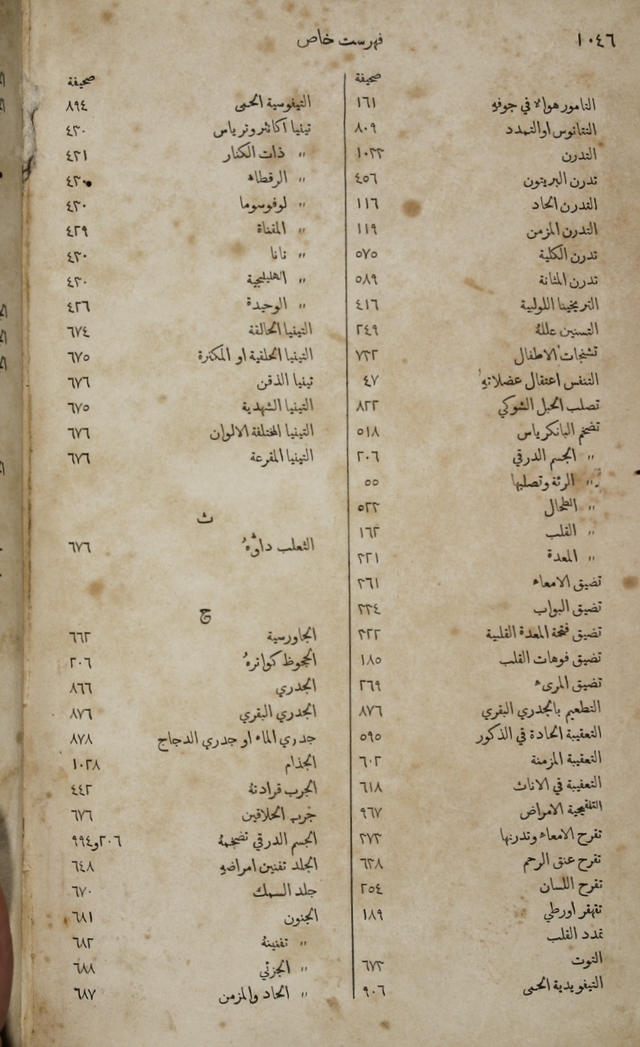 ١٠٤٦
فهرست خاص
صحيفة
التامور هوالا في جوفهِ ١٦١
التتانوس او التمدد ٨٠٩
التدرن ١٠٢٢
تدرن البريتون ٤٥٦
التدرن الحاد ١١٦
التدرن المزمن ١١٩
تدرن الكلية ٥٧٥
تدرن المثانة ٥٨٩
التريخينا اللولبية ٤١٦
التسنين عللهُ ٢٤٩
تشنجات الاطفال ٧٢٢
التنفس اعتقال عضلاتهِ ٤٧
تصلب الحبل الشوكي ٨٢٢
تضخم البانكرياس ٥١٨
〃 الجسم الدرقي ٢٠٦
〃 الرئة وتصلبها ٥٥
〃 الطحال ٥٢٢
〃 القلب ١٦٢
〃 المعدة ٢٢١
تضيق الامعاء ٢٦١
تضيق البواب ٢٢٤
تضيق فتحة المعدة القلبية ٢٢٢
تضيق فوهات القلب ١٨٥
تضيق المريء ٢٦٩
التطعيم بالجدري البقري ٨٧٦
التعقيبة الحادة في الذكور ٥٩٥
التعقيبة المزمنة ٦٠٢
التعقيبة في الاناث ٦١٨
التلفيجية الامراض ٩٦٧
تقرح الامعاء وتدرنها ٢٧٢
تقرح عنق الرحم ٦٢٨
تقرح اللسان ٢٥٤
تقهقر اورطي ١٨٩
تمدد القلب
التوت ٦٧٢
التيفويدية الحمى ٩٠٦
صحيفة
التيفوسية الحمى ٨٩٤
تينيا اكانثروترياس ٤٢٠
〃 ذات الكنار ٤٢١
〃 الرقطاء ٤٢٠
〃 لوفوسوما ٤٢٠
〃 المقناة ٤٢٩
〃 نانا ٤٢٠
〃 الهليلجية ٤٢٠
〃 الوحيدة ٤٢٦
التينيا الحالقة ٦٧٤
التينيا الحلقية او المكنرة ٦٧٥
تينيا الذقن ٦٧٦
التينيا الشهدية ٦٧٥
التينيا المختلفة الالوان ٦٧٦
التينيا المقرعة ٦٧٦
ث
الثعلب داوهُ ٦٧٦
ج
الجاورسية ٦٦٢
الجحوظ كواترهُ ٢٠٦
الجدري ٨٦٦
الجدري البقري ٨٧٦
جدري الماء او جدري الدجاج ٨٧٨
الجذام ١٠٢٨
الجرب قرادتهُ ٤٤٢
جرب الحلاقين ٦٧٦
الجسم الدرقي تضخمهُ ٢٠٦ و٩٩٤
الجلد تفنين امراضهِ ٦٤٨
جلد السمك ٦٧٠
الجنون ٦٨١
〃 تفنينهُ ٦٨٢
〃 الجزئي ٦٨٨
〃 الحاد والمزمن ٦٨٧